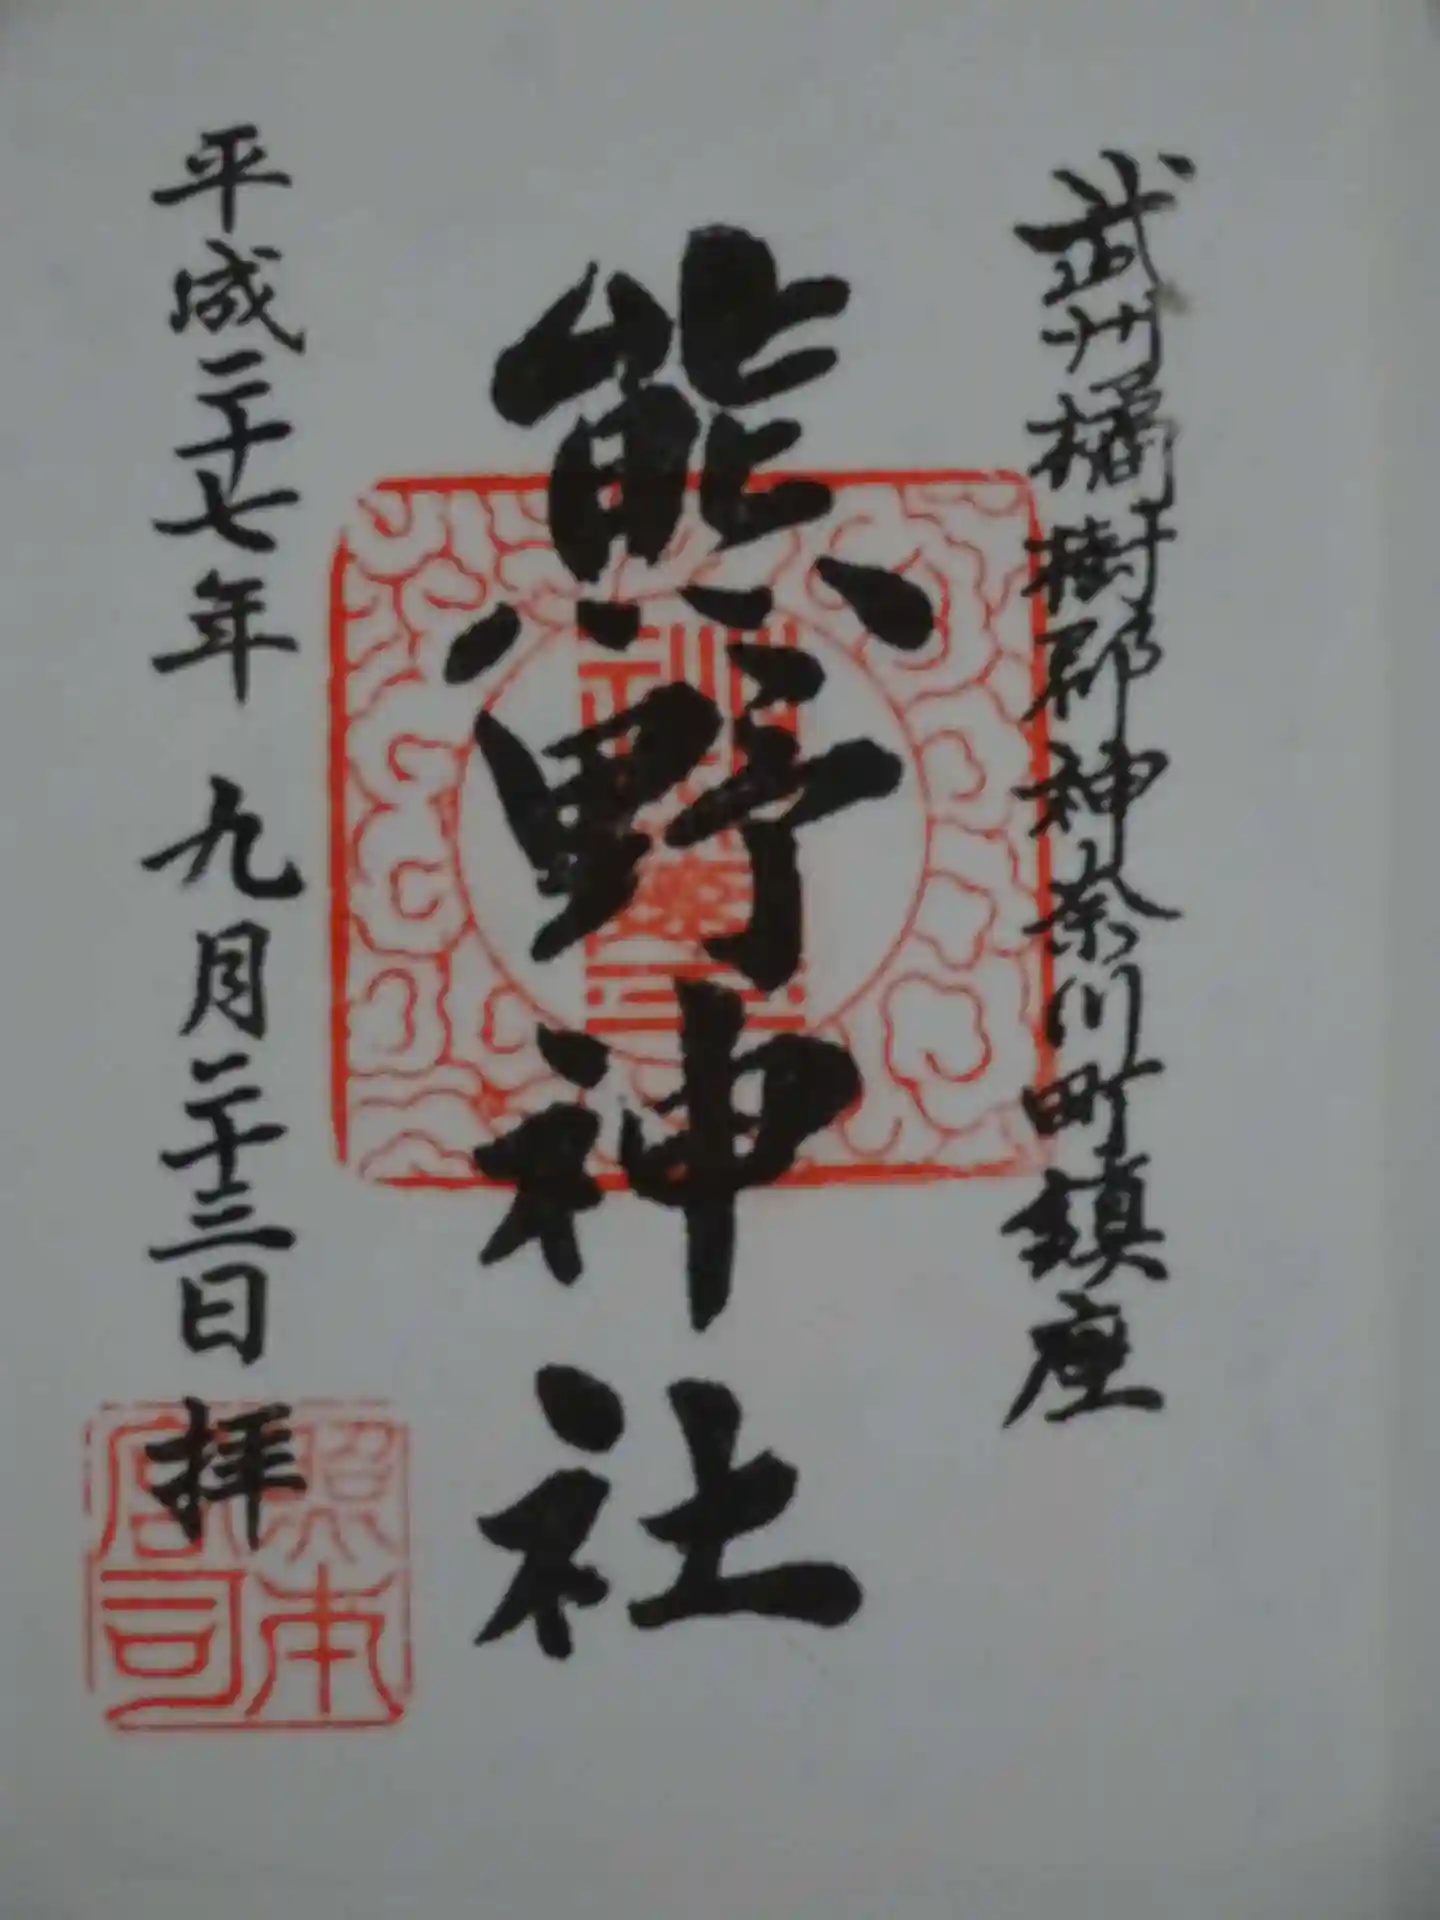 武州橘樹郡神奈川町鎮座
熊野神社
平成二十七年 九月二十三日 拝
照本
宮司